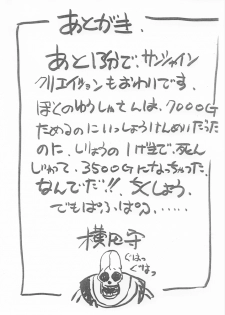 あとがき.
あと13分で、サンシャイン
クリエイションもおわりです.
ぼくのゆうしゃさんは、7000G
ためるのにいっしょうけんめいだった
のに、じょうの1げきで、死ん
じゃって、3500Gになっちゃった.
なんでだ!! ちくしょう.
でもぱふぱふ......
横田守
ぐはっ
ぐはっ